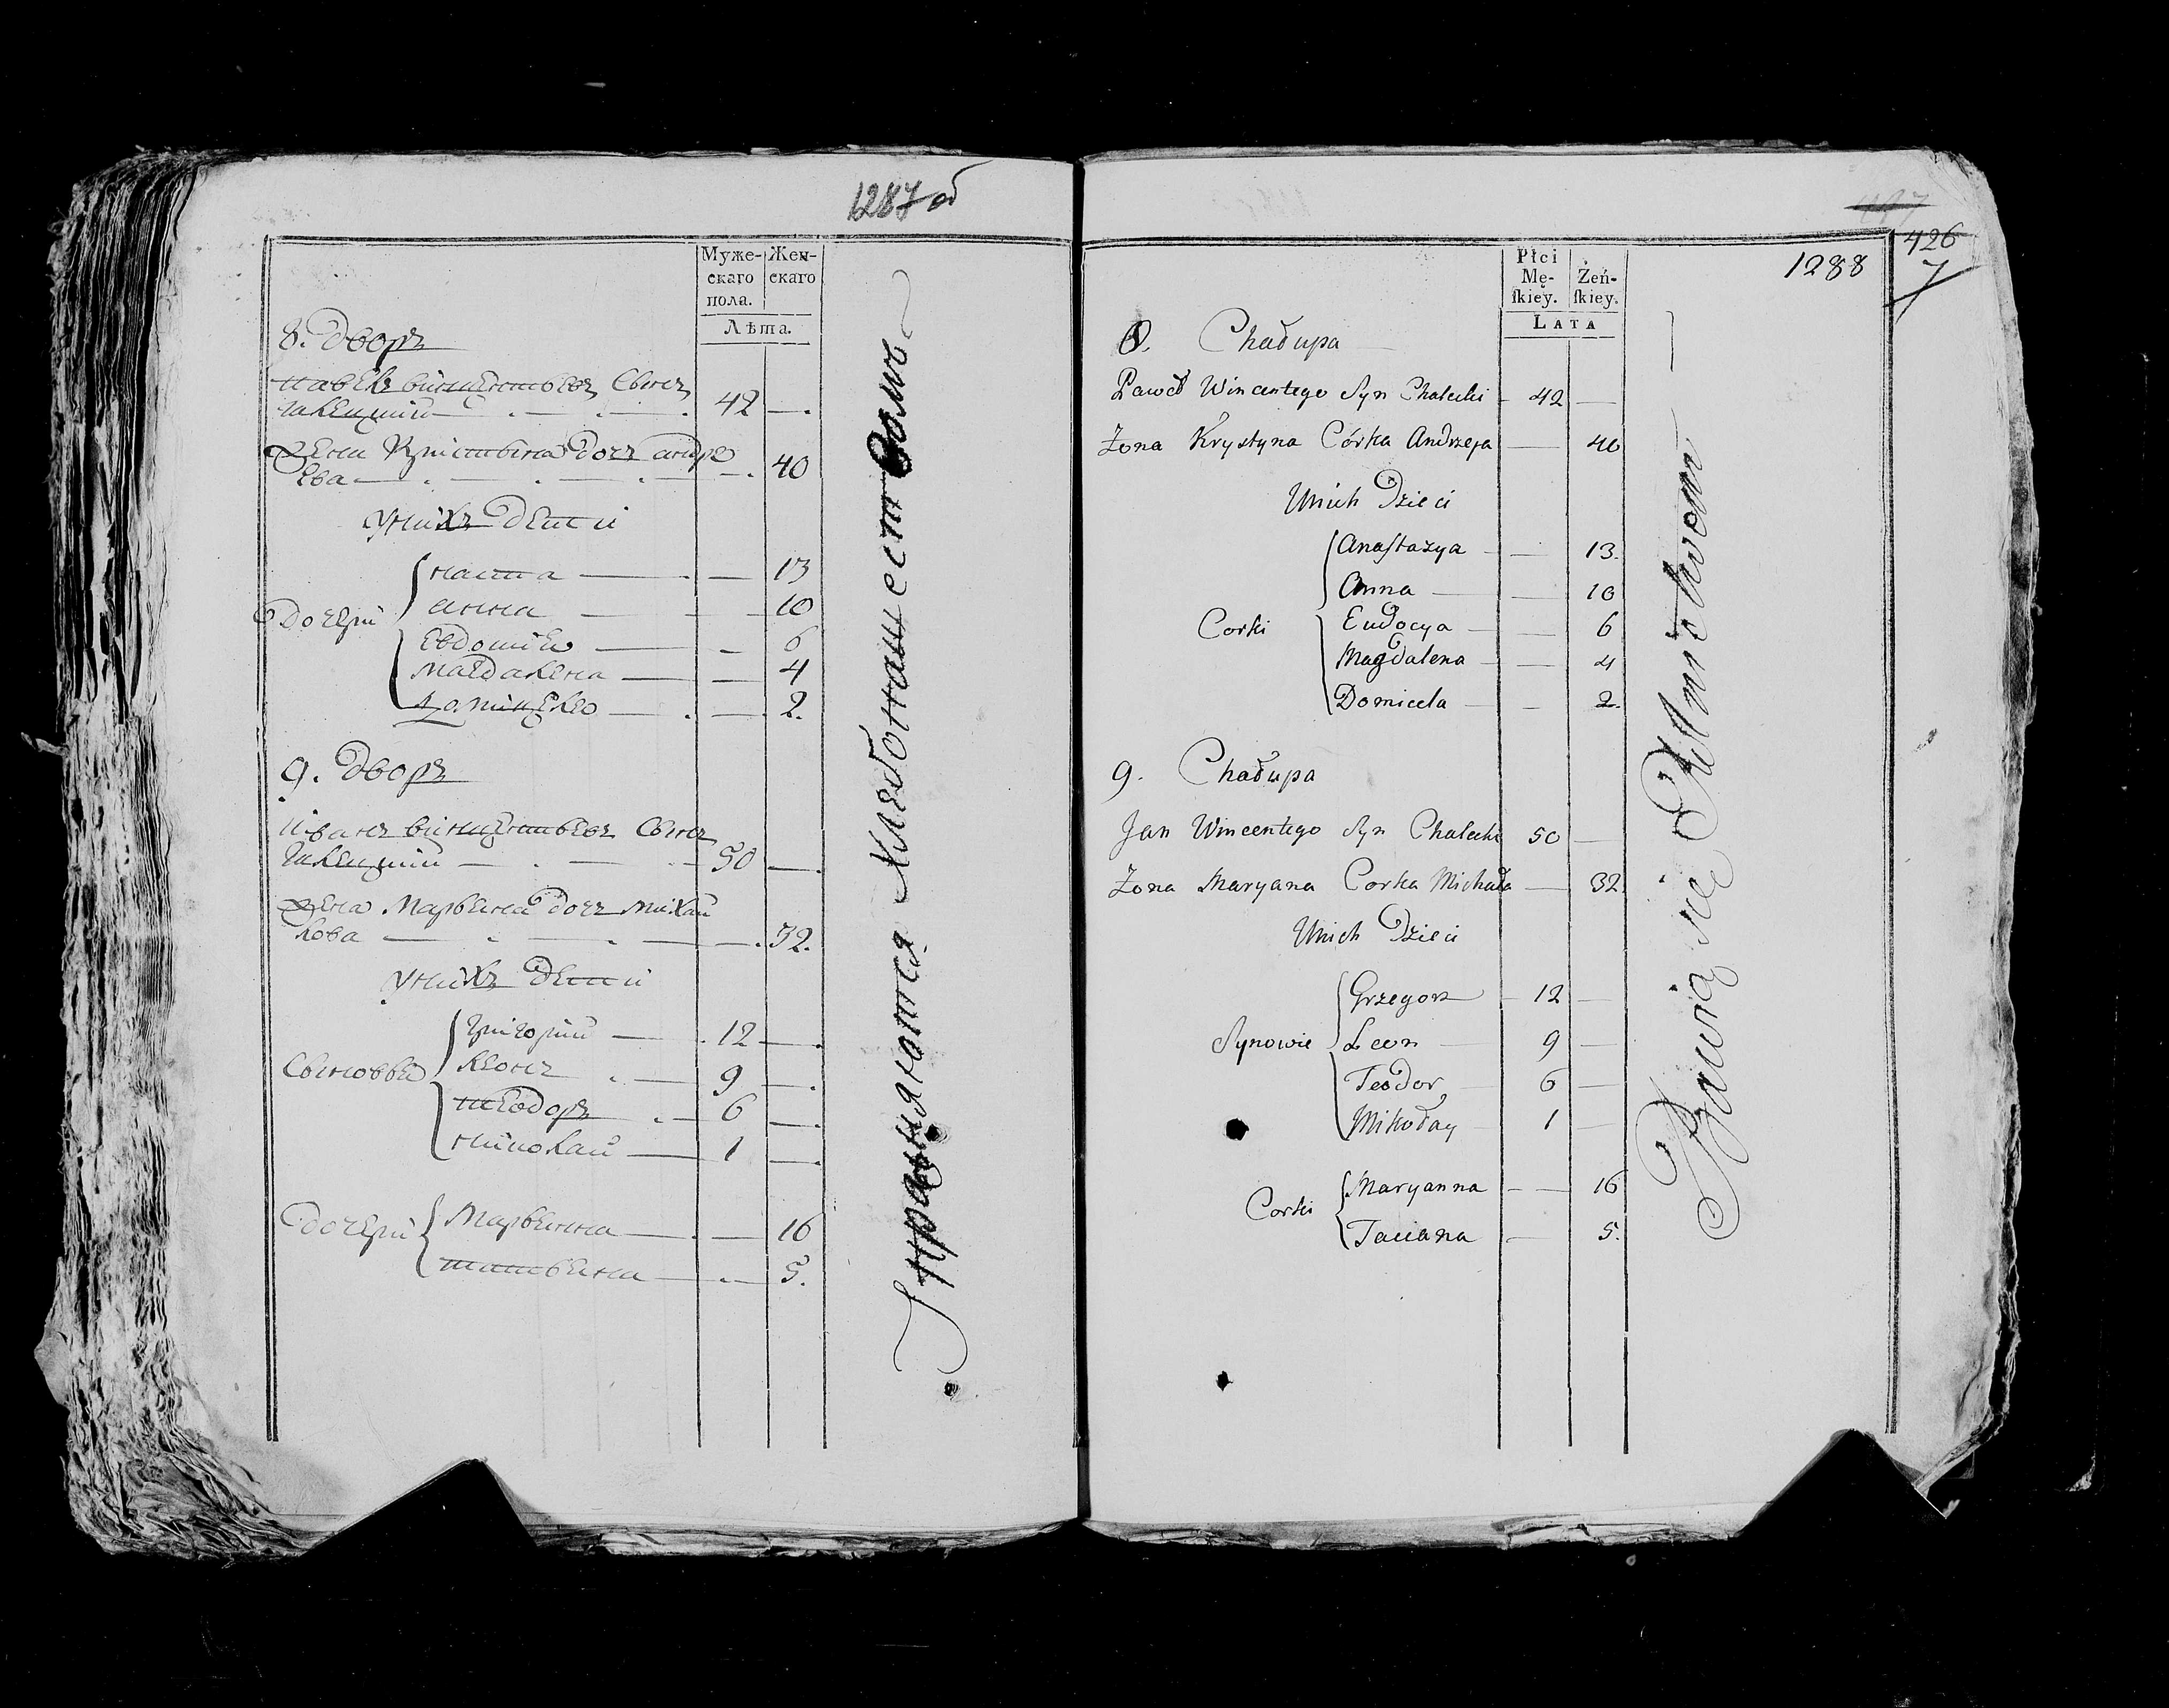 1287 об
Муже-
скаго
пола.
Жен-
скаго
Лѣта.
8. дворъ
павелъ винцентьевъ Сынъ
Халецкий 42
жена Кристына дочъ андре
ева 40
у нихъ дети
дочери
наста 13
анна 10
Евдокия 6
магдалена 4
Домицеля 2.
9. дворъ
иванъ винцентьевъ Сынъ
Халецкий 50
жена Марьяна дочъ михай
лова 32.
у нихъ дети
Сыновья
григорий 12
леонъ 9
теодоръ 6
николай 1
дочери
Марьянна 16
татьяна 5.
упражняются хлебопашеством
417
426
7
1288
Płci
Mę-
ſkiey.
Żeń-
ſkiey.
LATA
8. Chałupa
Paweł Wincentego Syn Chalecki 42
Zona Krystyna Córka Andrzeja 40
Unich Dzieci
Corki
Anastazya 13.
Anna 10
Eudocya 6
Magdalena 4
Domicela 2.
9. Chałupa
Jan Wincentego Syn Chalecki 50
Zona Maryana Corka Michała 32.
Unich Dzieci
Synowie
Grzegorz 12
Leon 9
Teodor 6
Mikołay 1
Corki
Maryanna 16
Taciana 5.
Bawią się Rolnictwem